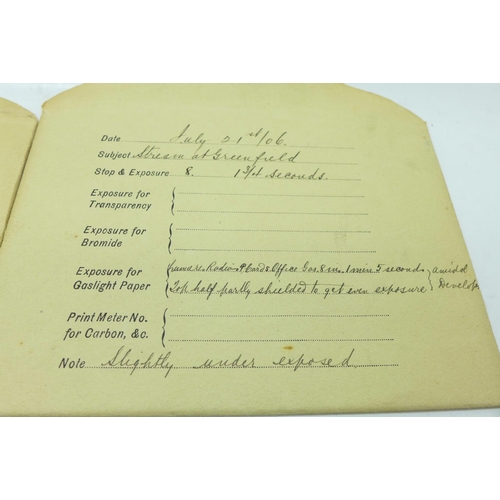 Date July 21st/06.
Subject Stream at Greenfield
Stop & Exposure 8. 1 3/4 seconds.
Exposure for
Transparency
Exposure for
Bromide
Exposure for
Gaslight Paper
Office Gas. 8 in. 1 min 5 seconds
Top half partly shielded to get even exposure
amidol
Develop
Print Meter No.
for Carbon, &c.
Note Slightly under exposed